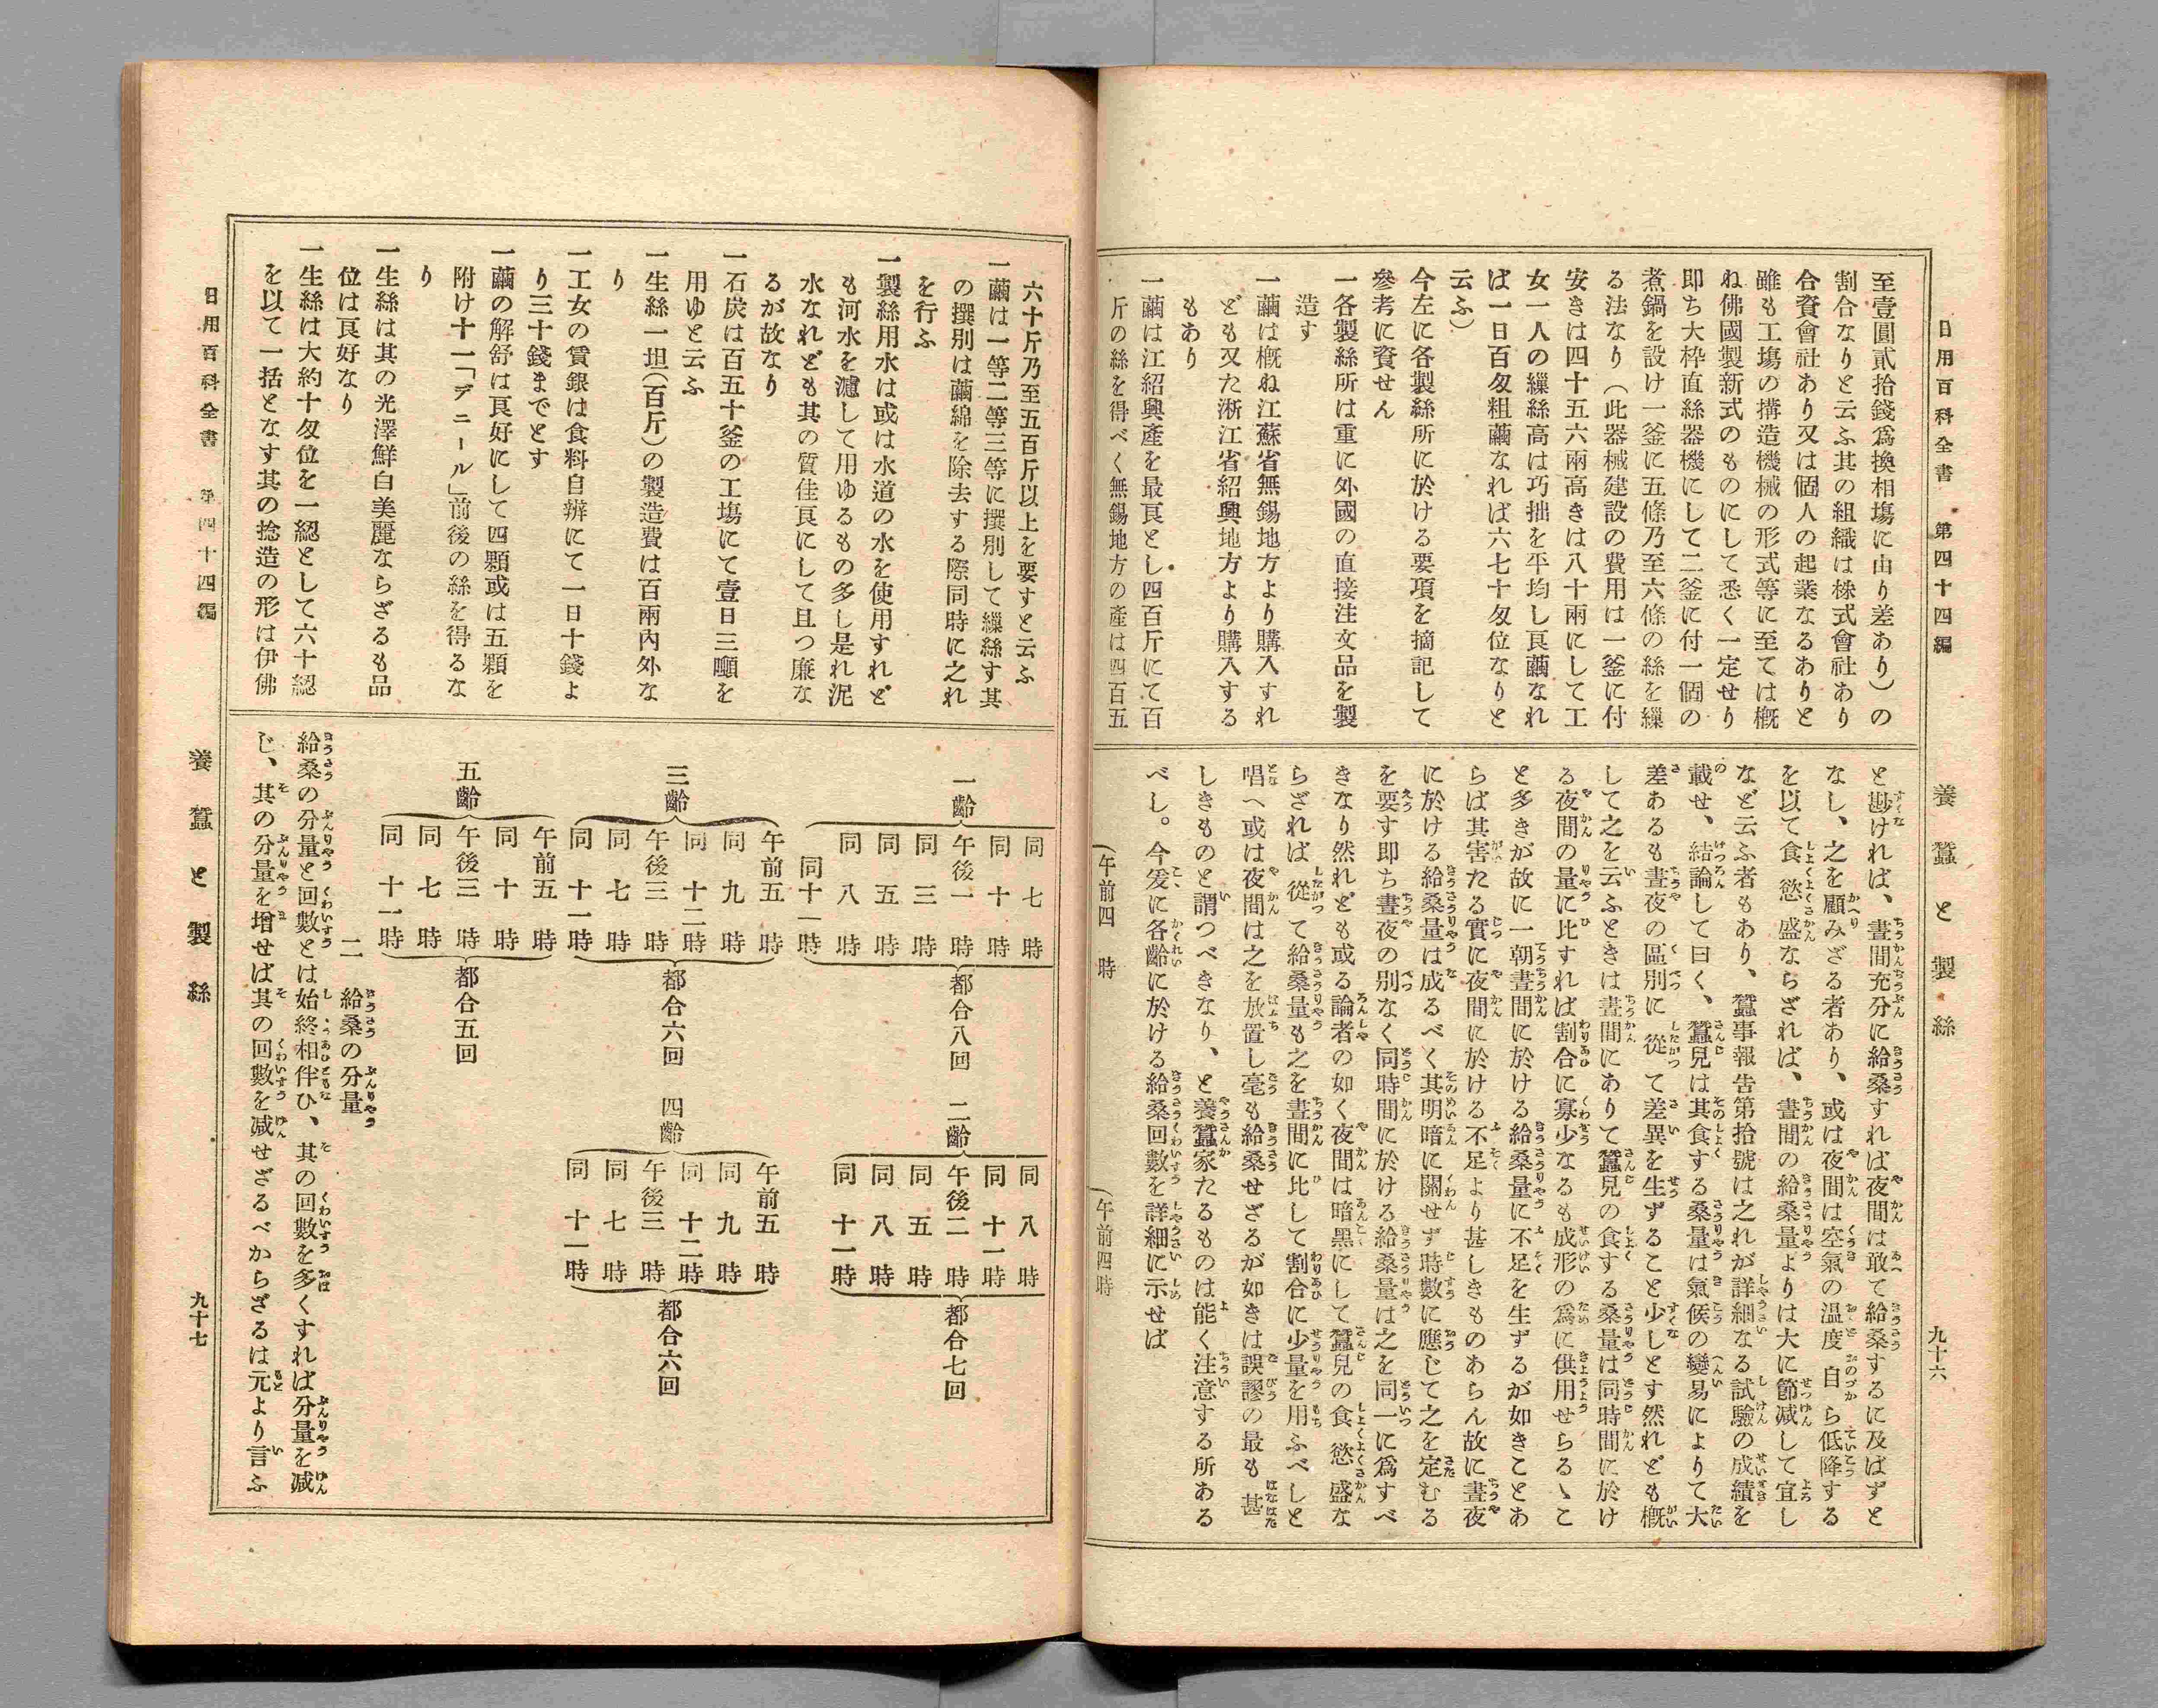 日用百科全書　第四十四編
養蠶と製絲
九十六
至壹圓貳拾錢爲換相塲に由り差あり）の
割合なりと云ふ其の組織は株式會社あり
合資會社あり又は個人の起業なるありと
雖も工塲の搆造機械の形式等に至ては概
ね佛國製新式のものにして悉く一定せり
即ち大枠直絲器機にして二釜に付一個の
煮鍋を設け一釜に五條乃至六條の絲を繅
る法なり（此器械建設の費用は一釜に付
安きは四十五六兩高きは八十兩にして工
女一人の繅絲高は巧拙を平均し良繭なれ
ば一日百匁粗繭なれば六七十匁位なりと
云ふ）
今左に各製絲所に於ける要項を摘記して
參考に資せん
一各製絲所は重に外國の直接注文品を製
造す
一繭は概ね江蘇省無錫地方より購入すれ
ども又た淅江省紹興地方より購入する
もあり
一繭は江紹興產を最良とし四百斤にて百
斤の絲を得べく無錫地方の產は四百五
と尠ければ、晝間充分に給桑すれば夜間は敢て給桑するに及ばずと
なし、之を顧みざる者あり、或は夜間は空氣の溫度自ら低降する
を以て食慾盛ならざれば、晝間の給桑量よりは大に節减して宜し
など云ふ者もあり、蠶事報告第拾號は之れが詳細なる試驗の成績を
載せ、結論して曰く、蠶兒は其食する桑量は氣候の變易によりて大
差あるも晝夜の區別に從て差異を生ずること少しとす然れども概
して之を云ふときは晝間にありて蠶兒の食する桑量は同時間に於け
る夜間の量に比すれば割合に寡少なるも成形の爲に供用せらるゝこ
と多きが故に一朝晝間に於ける給桑量に不足を生ずるが如きことあ
らば其害たる實に夜間に於ける不足より甚しきものあらん故に晝夜
に於ける給桑量は成るべく其明暗に關せず時數に應じて之を定むる
を要す即ち晝夜の別なく同時間に於ける給桑量は之を同一に爲すべ
きなり然れども或る論者の如く夜間は暗黑にして蠶兒の食慾盛な
らざれば從て給桑量も之を晝間に比して割合に少量を用ふべしと
唱へ或は夜間は之を放置し毫も給桑せざるが如きは誤謬の最も甚
しきものと謂つべきなり、と養蠶家たるものは能く注意する所ある
べし。今爰に各齡に於ける給桑回數を詳細に示せば
（午前四　時
（午前四時
六十斤乃至五百斤以上を要すと云ふ
一繭は一等二等三等に撰別して繅絲す其
の撰別は繭綿を除去する際同時に之れ
を行ふ
一製絲用水は或は水道の水を使用すれど
も河水を濾して用ゆるもの多し是れ泥
水なれども其の質佳良にして且つ廉な
るが故なり
一石炭は百五十釜の工塲にて壹日三噸を
用ゆと云ふ
一生絲一坦（百斤）の製造費は百兩內外な
り
一工女の賃銀は食料自辨にて一日十錢よ
り三十錢までとす
一繭の解舒は良好にして四顆或は五顆を
附け十一「デニール」前後の絲を得るな
り
一生絲は其の光澤鮮白美麗ならざるも品
位は良好なり
一生絲は大約十匁位を一綛として六十綛
を以て一括となす其の捻造の形は伊佛
一齡
同　七　時
同　十　時
午後一　時
同　三　時
同　五　時
同　八　時
同十一時
都合八回
二齡
同　八　時
同　十一時
午後二　時
同　五　時
同　八　時
同　十一時
都合七回
三齡
午前五　時
同　九　時
同　十二時
午後三　時
同　七　時
同　十一時
都合六回
四齡
午前五　時
同　九　時
同　十二時
午後三　時
同　七　時
同　十一時
都合六回
五齡
午前五　時
同　十　時
午後三　時
同　七　時
同　十一時
都合五回
二　給桑の分量
給桑の分量と回數とは始終相伴ひ、其の回數を多くすれば分量を减
じ、其の分量を增せば其の回數を减せざるべからざるは元より言ふ
日用百科全書　第四十四編
養蠶と製絲
九十七